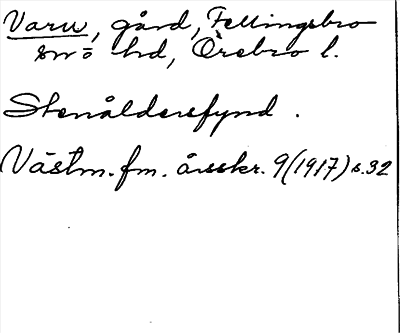 Varu, gård, Fellingsbro
sn o hd, Örebro l.
Stenåldersfynd.
Västm. fm. årsskr. 9(1917) s. 32